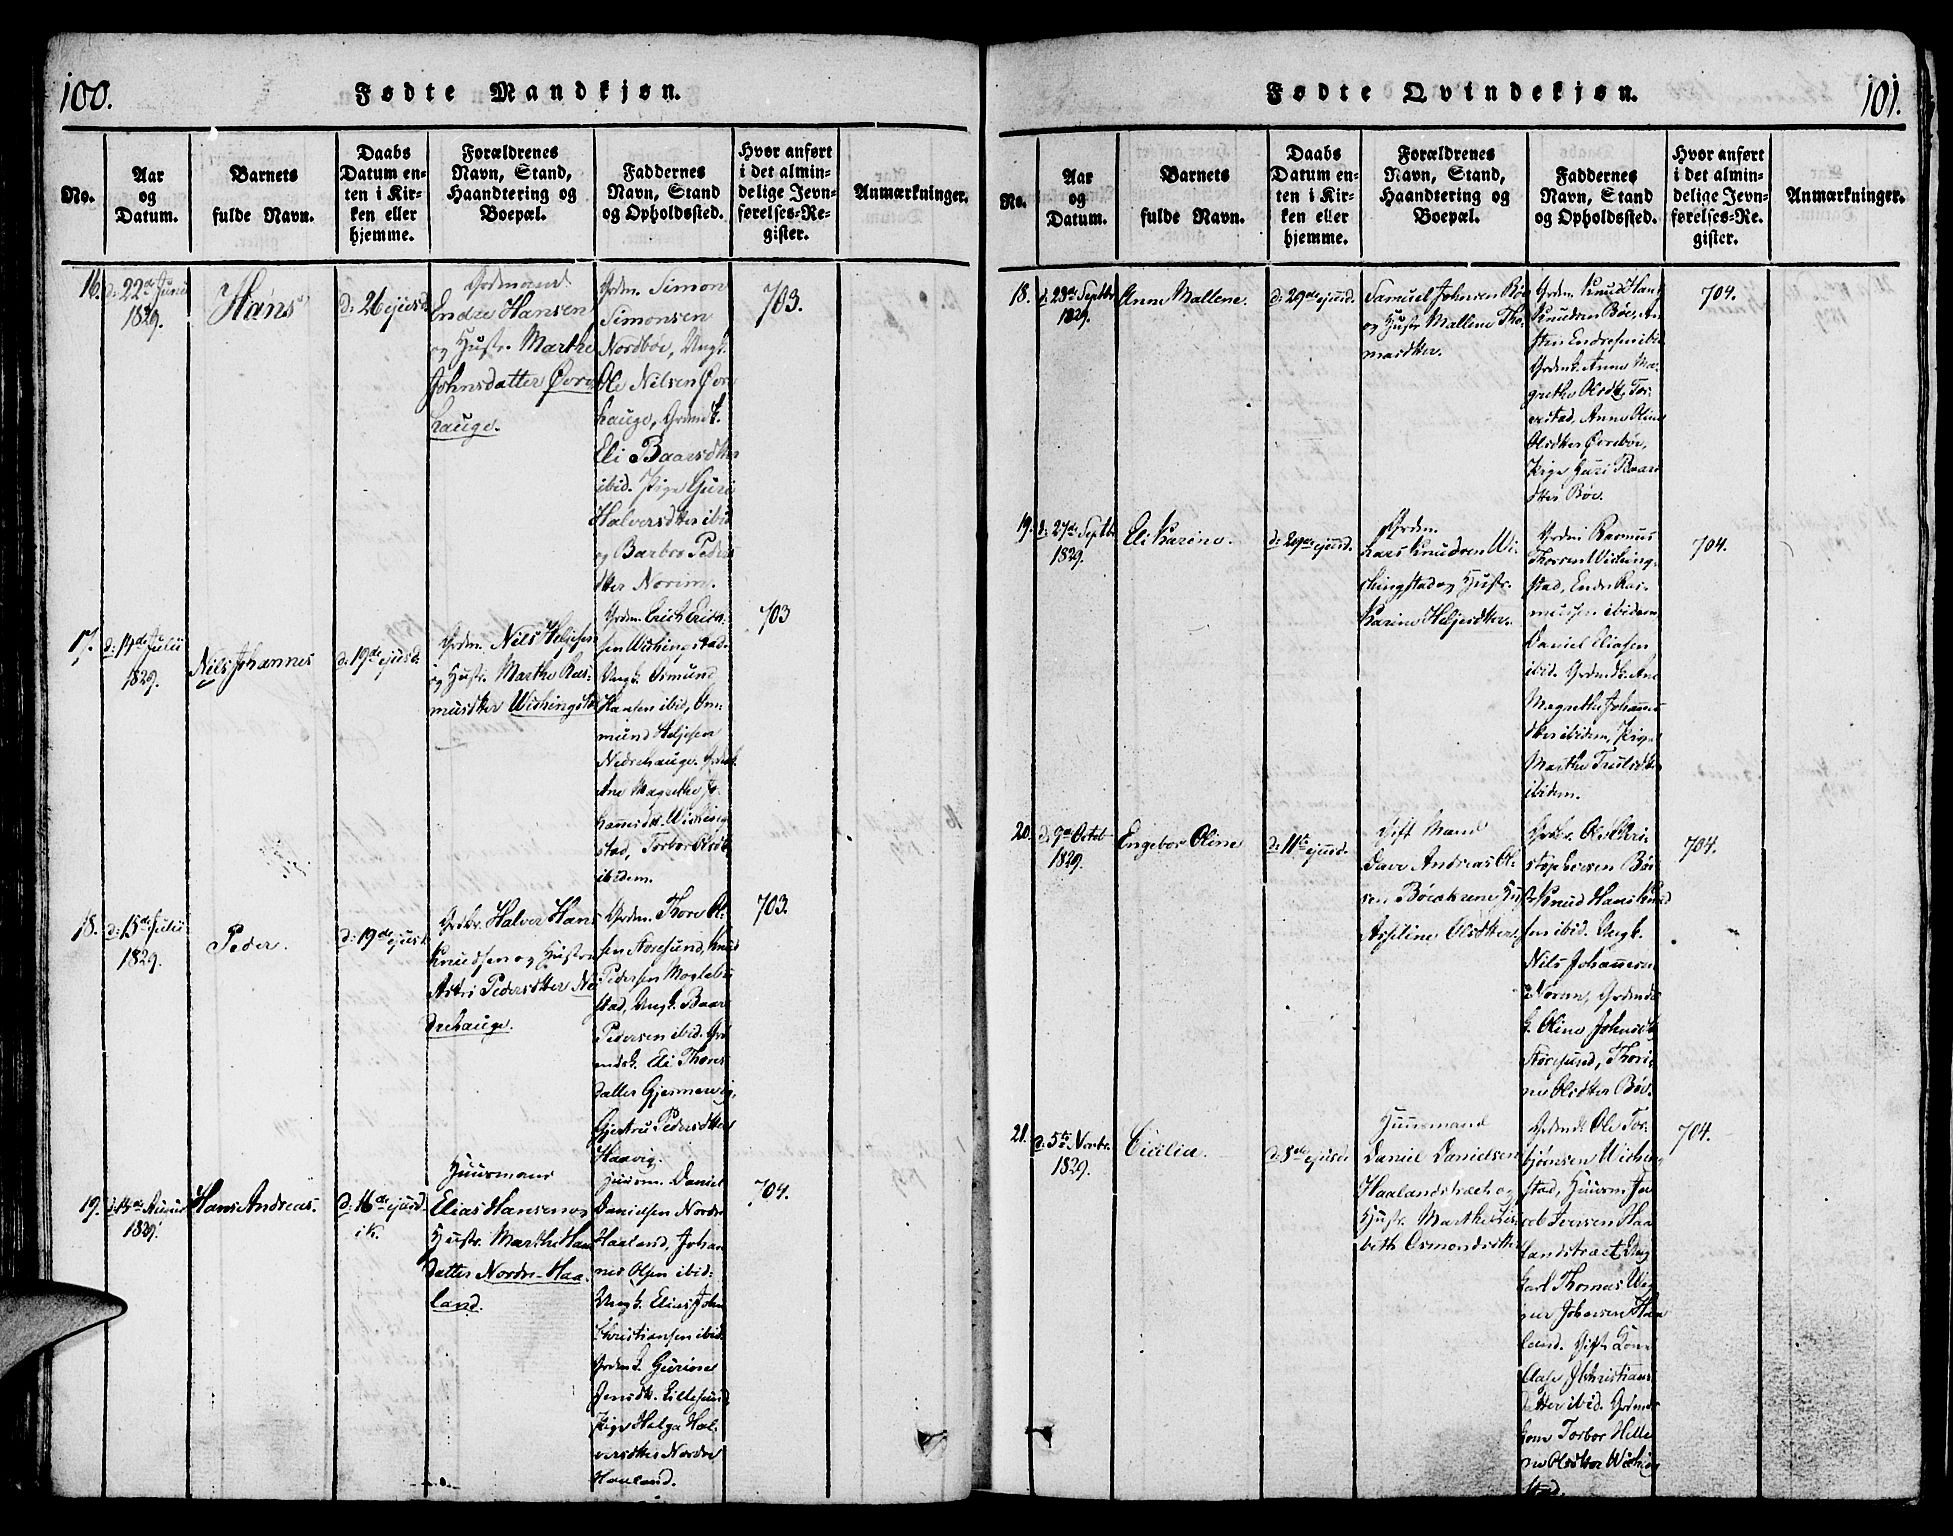 100.
Fødte Mandkjøn.
No.
Aar
og
Datum.
Barnets
fulde Navn.
Daabs
Datum en-
ten i Kir-
ken eller
hjemme.
Forældrenes
Navn, Stand,
Haandtering og
Boepæl.
Faddernes
Navn, Stand
og Opholdssted.
Hvor anført
i det almin-
delige Jevn-
førelses-Re-
gister.
Anmærkninger.
16.
d: 22de Juni
1829.
Hans
d: 26 ejusd
Grdmand
Endre Hansen
og Hustr. Marthe
Johnsdatter Øvre
hauge.
Grdm. Simon
Simonsen
Nordbøe, Ungk.
Ole Nilsen Øvre
hauge, Grdmk.
Eli Baarsdtter
ibid. Pige Guri
Halversdtter ibid
og Barbro Peders
dtter Norim.
703.
17.
d: 14de Julii
1829.
Nils Johannes
d: 19de ejusd.
Grdm. Nils Heljesen
og Hustr. Marthe Ras-
musdtter Wishingstad
Grdm. Erich Erich
sen Wishingstad.
Ungk. Osmund
Hansen ibid,
mund Heljesen
Nedrehauge.
Ane Magrethe Jo-
hannesdtr. Wishing
stad, Torbor Olsdtr
ibidem.
703
18.
d: 15de Julii
1829.
Peder.
d: 19de ejusd.
Grdbr. Halver Hans
Knudsen og Hustru
Astri Pedersdtter Ne
drehauge.
Grdm. Thore Ol-
sen Storesund, Knud
Pedersen Mogleb
stad, Ungk. Baar
Pedersen ibid. Grd
mdsk. Eli Thores
datter Gjesmervig,
Gjertru Pedersdtter
Haavig.
703.
19.
1829.
Hans Andreas.
d: 16de ejusd.
ik.
Huusmand
Elias Hansen og
Hustr. Marthe Han
datter Nordre-Haa-
land.
Huusm. Daniel
Danielsen Nordre
Haaland, Johan
nes Olsen ibid.
Ungk. Elias John
Christiansen ibid.
Grdmk. Gurine
Jensdtr. Lillesund
Pige Helga Hal-
versdtter Nordre
Haaland.
704.
101.
Fødte Qvindekjøn.
No.
Aar
og
Datum.
Barnets
fulde Navn.
Daabs
Datum en-
ten i Kir-
ken eller
hjemme.
Forældrenes
Navn, Stand,
Haandtering og
Boepæl.
Faddernes
Navn, Stand
og Opholdssted.
Hvor anført
i det almin-
delige Jevn-
førelses-Re-
gister.
Anmærkninger.
18.
d: 23de Septbr
1829.
Anne Mallene.
d: 29de ejusd.
Samuel Johnsen Bøe
og Hustr. Mallene Tho-
masdtter.
Grdm. Knud Hans
Knudsen Bøe,
sten Endresen ibid
Grdmk. Anne Ma-
grethe Olsdtr, Tor-
vestad, Anne Oline
Olsdtter Øvrebøe,
Pige Guri Baars
dtter Bøe.
704.
19.
d: 27de Septbr
1829.
Eli Karine.
d: 29de ejusd.
Grdm.
Lars Knudsen Wi-
shingstad og Hustr.
Karine Heljesdtter.
Grdm. Rasmus
Thorsen Wishing-
stad, Endre Ras-
mussen ibidem
Daniel Eliasen
ibid. Grdmdk. Ane
Magrethe Johannes
dtter ibidem, Pige
Marthe Truelsdtter
ibidem.
704.
20.
d: 9de Octbr
1829.
Engebor Oline
d: 11te ejusd.
Gift Mand
Lars Andreas Ol-
sen Bøe
Asseline Olsdtter.
Grdbr. Ole Chri-
stophersen Bøe
Knud Hans Knud
sen ibid. Ungk.
Nils Johannesen
Norem, Grdmds
k. Oline Johnsdtr
Storesund, Thori-
ne Olsdtter Bøe.
704.
21.
d: 5te Novbr.
1829.
Cicilia.
d: 8de ejusd
Huusmand
Daniel Danielsen
Haalandstræet og
Hustr. Marthe Lis-
beth Osmondsdtter
Grdmd. Ole Tor-
bjørnsen Wishing
stad, Huusm. Ja-
cob Iversen Haa
landstræet, Ung
karl Thomas
Johnsen Haa
land. Gift Kone
Aase J. Christians
datter ibid. Grdmds
kone Torbor Hele
ne Olsdtter Wishing
stad.
704.